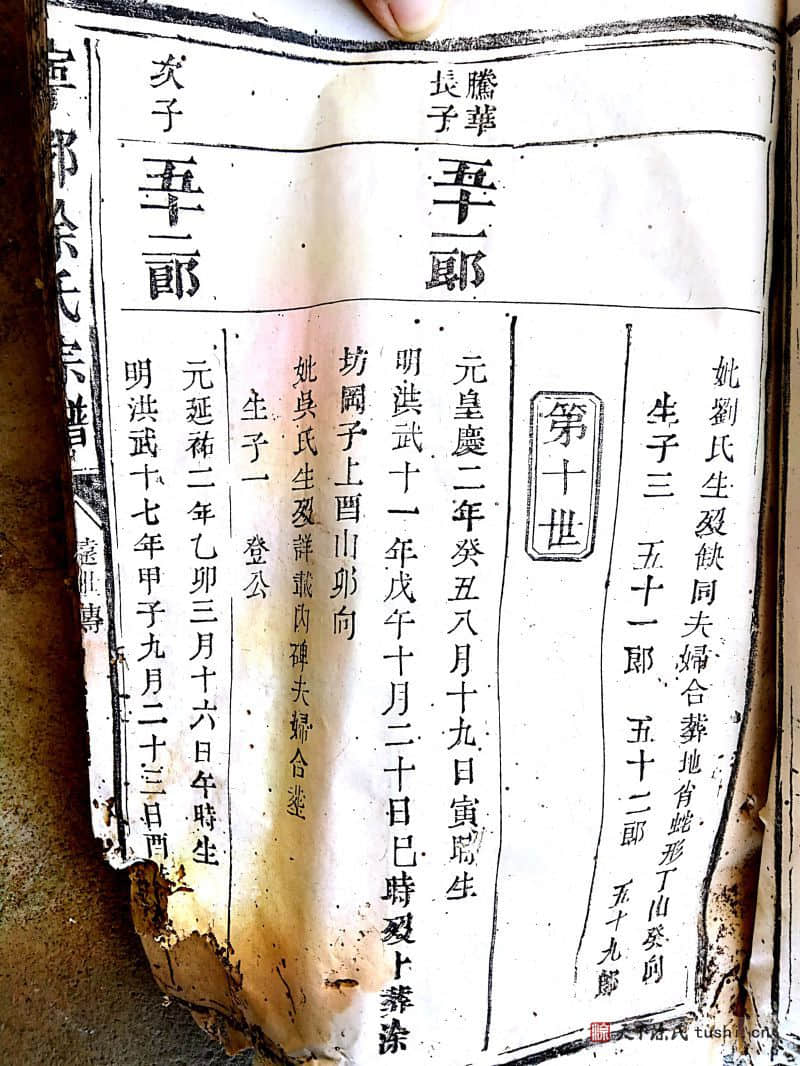 妣劉氏生歿缺同夫婦合葬地肖蛇形丁山癸向
生子三 五十一郎 五十二郎 五十九郎
第十世
騰華
長子
五十一郎
元皇慶二年癸丑八月十九日寅時生
明洪武十一年戊午十月二十日巳時歿上葬涂
坊岡子上酉山卯向
妣吳氏生歿詳載內碑夫婦合塟
生子一 登公
次子
五十二郎
元延祐二年乙卯三月十六日午時生
明洪武十七年甲子九月二十三日酉
寧都涂氏宗譜
遠世傳
天下涂氏 tushi.cn